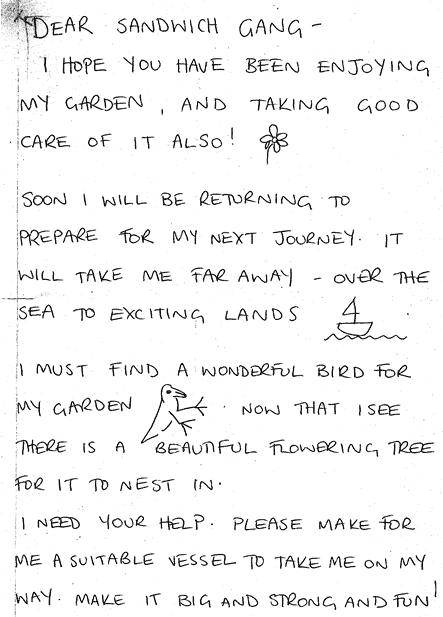 DEAR SANDWICH GANG -
I HOPE YOU HAVE BEEN ENJOYING
MY GARDEN , AND TAKING GOOD
CARE OF IT ALSO!
SOON I WILL BE RETURNING TO
PREPARE FOR MY NEXT JOURNEY. IT
WILL TAKE ME FAR AWAY - OVER THE
SEA TO EXCITING LANDS .
I MUST FIND A WONDERFUL BIRD FOR
MY GARDEN . NOW THAT I SEE
THERE IS A BEAUTIFUL FLOWERING TREE
FOR IT TO NEST IN.
I NEED YOUR HELP. PLEASE MAKE FOR
ME A SUITABLE VESSEL TO TAKE ME ON MY
WAY. MAKE IT BIG AND STRONG AND FUN!